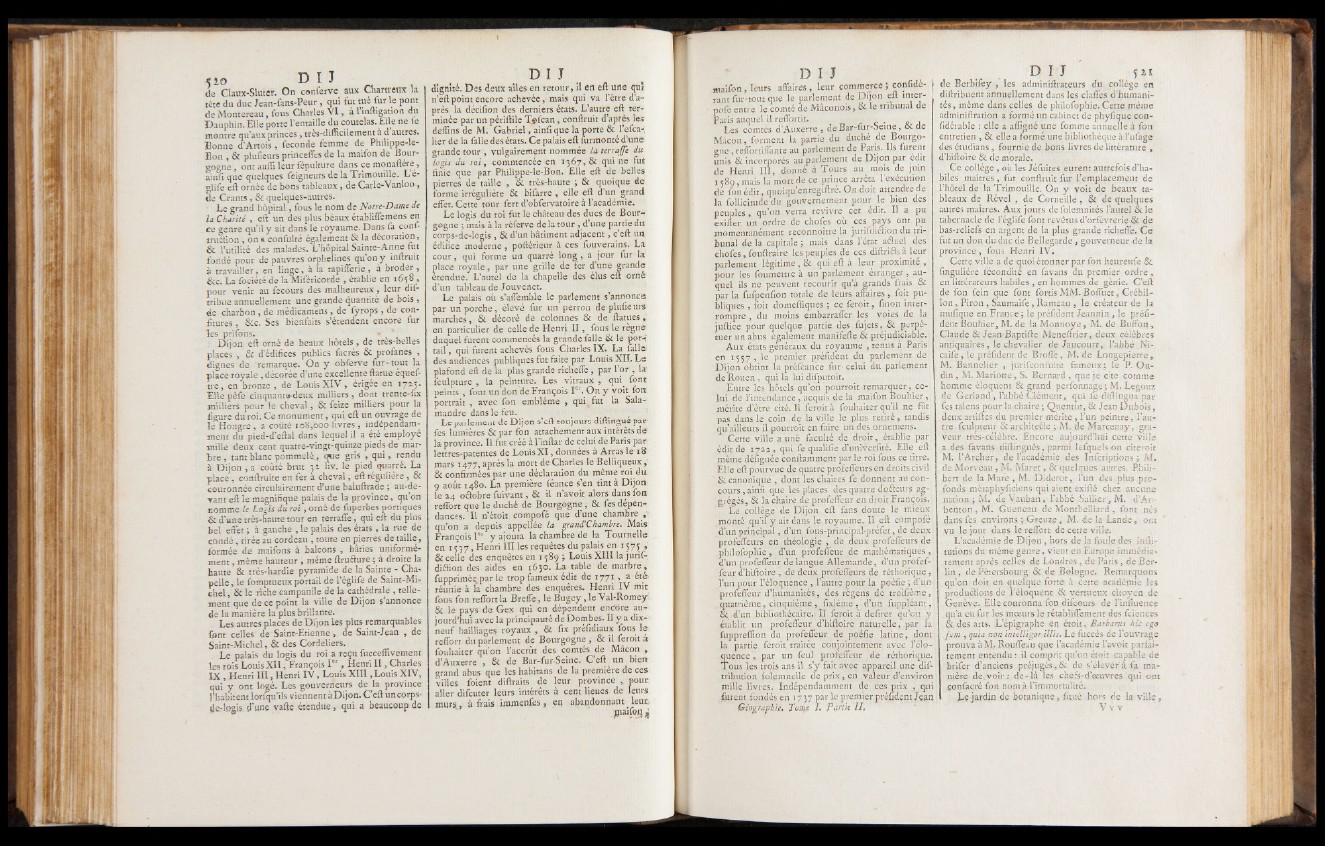 520 DIJ
de Claux-Sluter. On conserve aux Chartreux la
tête du duc Jean-sans-Peur, qui fut tué sur le pont
de Montereau, sous Charles VI, à l'instigation du
Dauphin. Elle porte l'entaille du coutelas. Elle ne se
montre qu'aux princes, très-difficilement à d'autres.
Bonne d'Artois, seconde femme de Philippe-le-
Bon, & plusieurs princesses de la maison de Bour-
gogne, ont aussi leur sépulture dans ce monastère,
ainsi que quelques seigneurs de la Trimouille. L'é-
glise est ornée de bons tableaux, de Carle-Vanloo,
de Crants, & quelques-autres.
Le grand hôpital, sous le nom de Notre-Dame de
la Charité, est un des plus beaux établissemens en
ce genre qu'il y ait dans le royaume. Dans sa cons-
truction, on a consulté également & la décoration,
& l'utilité des malades. L'hôpital Sainte-Anne fut
fondé pour de pauvres orphelines qu'on y instruit
à travailler, en linge, à la tapisserie, à broder,
&c. La société de la Miséricorde, établie en 1658,
pour venir au secours des malheureux, leur dis-
tribue annuellement une grande quantité de bois,
de charbon, de médicamens, de syrops, de con-
fitures, &c. Ses bienfaits s'étendent encore sur
les prisons.
Dijon est orné de beaux hôtels, de très-belles
places, & d'édifices publics sacrés & profanes,
dignes de remarque. On y observe sur-tout la
place royale, décorée d'une excellente statue éques-
tre, en bronze, de Louis XIV, érigée en 1725.
Elle pèse cinquante-deux milliers, dont trente-six
milliers pour le cheval, & seize milliers pour la
figure du roi. Ce monument, qui est un ouvrage de
le Hongre, a coûté 108,000 livres, indépendam-
ment du pied-d'estal dans lequel il a été employé
mille deux cent quatre-vingt-quinze pieds de mar-
bre, tant blanc pommelé, que gris, qui, rendu
à Dijon, a coûté brut 32 liv. le pied quarré. La
place, construite en fer à cheval, est régulière, &
couronnée circulairement d'une balustrade; au-de-
vant est le magnifique palais de la province, qu'on
nomme le Logis du roi, orné de superbes portiques
& d'une très-haute tour en terrasse, qui est du plus
bel effet; à gauche, le palais des états, la rue de
condé, tirée au cordeau, toute en pierres de taille,
formée de maisons à balcons, bâties uniformé-
ment, même hauteur, même structure; à droite la
haute & très-hardie pyramide de la Sainte-Cha-
pelle, le somptueux portail de l'église de Saint-Mi-
chel, & le riche campanile de la cathédrale, telle-
ment que de ce point la ville de Dijon s'annonce
de la manière la plus brillante.
Les autres places de Dijon les plus remarquables
sont celles de Saint-Etienne, de Saint-Jean, de
Saint-Michel, & des Cordeliers.
Le palais du logis du roi a reçu successivement
les rois Louis XII, François Ier, Henri II, Charles
IX, Henri III, Henri IV, Louis XIII, Louis XIV,
qui y ont logé. Les gouverneurs de la province
l'habitent lorsqu'ils viennent à Dijon. C'est un corps-
de-logis d'une vaste étendue, qui a beaucoup de
DIJ
dignité. Des deux aîles en retour, il en est une qui
n'est point encore achevée, mais qui va l'être d'a-
près la décision des derniers états. L'autre est ter-
minée par un péristile Toscan, construit d'après les
dessins de M. Gabriel, ainsi que la porte & l'esca-
lier de la salle des états. Ce palais est surmonté d'une
grande tour, vulgairement nommée la terrasse du
logis du roi, commencée en 1367, & qui ne fut
finie que par Philippe-le-Bon. Elle est de belles
pierres de taille, & très-haute; & quoique de
forme irrégulière & bisarre, elle est d'un grand
effet. Cette tour sert d'observatoire à l'académie.
Le logis du roi fut le château des ducs de Bour-
gogne; mais à la réserve de la tour, d'une partie du
corps-de-logis, & d'un bâtiment adjacent, c'est un
édifice moderne, postérieur à ces souverains. La
cour, qui forme un quarré long, a jour sur la
place royale, par une grille de fer d'une grande
étendue. L'autel de la chapelle des élus est orné
d'un tableau de Jouvenet.
Le palais où s'assemble le parlement s'annonce
par un porche, élevé sur un perron de plusieurs
marches, & décoré de colonnes & de statues,
en particulier de celle de Henri II, sous le règne
duquel furent commencés la grande salle & le por-
tail, qui furent achevés sous Charles IX. La salle
des audiences publiques fut faite par Louis XII. Le
plafond est de la plus grande richesse, par l'or, la
sculpture, la peinture. Les vitraux, qui sont
peints, sont un don de François Ier. On y voit son
portrait, avec son emblême, qui fut la Sala-
mandre dans le feu.
Le parlement de Dijon s'est toujours distingué par
ses lumières & par son attachement aux intérêts de
la province. Il fut créé à l'instar de celui de Paris par
lettres-patentes de Louis XI, données à Arras le 18
mars 1477, après la mort de Charles le Belliqueux,
& confirmées par une déclaration du même roi du
9 août 1480. La première séance s'en tint à Dijon
le 24 octobre suivant, & il n'avoit alors dans son
ressort que le duché de Bourgogne, & ses dépen-
dances. Il n'étoit composé que d'une chambre,
qu'on a depuis appellée la grand'Chambre. Mais
François Ier y ajouta la chambre de la Tournelle
en 1537, Henri III les requêtes du palais en 1575,
& celle des enquêtes en 1589; Louis XIII la juris-
diction des aides en 1630. La table de marbre,
supprimée par le trop fameux édit de 1771, a été
réunie à la chambre des enquêtes. Henri IV mit
sous son ressort la Bresse, le Bugey, le Val-Romey
& le pays de Gex qui en dépendent encore au-
jourd'hui avec la principauté de Dombes. Il y a dix-
neuf bailliages royaux, & six présidiaux sous le
ressort du parlement de Bourgogne, & il seroit à
souhaiter qu'on l'accrût des comtés de Mâcon,
d'Auxerre, & de Bar-sur-Seine. C'est un bien
grand abus que les habitans de la première de ces
villes soient distraits de leur province, pour
aller discuter leurs intérêts à cent lieues de leurs
murs, à frais immenses, en abandonnant leur
maison,
DIJ
maison, leurs affaires, leur commerce; considé-
rant sur-tout que le parlement de Dijon est inter-
posé entre le comté de Mâconois, & le tribunal de
Paris auquel il ressortit.
Les comtés d'Auxerre, de Bar-sur-Seine, & de
Mâcon, forment la partie du duché de Bourgo-
gne, ressortissante au parlement de Paris. Ils furent
unis & incorporés au parlement de Dijon par édit
de Henri III, donné à Tours au mois de juin
1589, mais la mort de ce prince arrêta l'exécution
de son édit, quoiqu'enregistré. On doit attendre de
la sollicitude du gouvernement pour le bien des
peuples, qu'on verra revivre cet édit. Il a pu
exister un ordre de choses où ces pays ont pu
momentanément reconnoître la jurisdiction du tri-
bunal de la capitale; mais dans l'état actuel des
choses, soustraire les peuples de ces districts à leur
parlement légitime, & qui est à leur proximité,
pour les soumettre à un parlement étranger, au-
quel ils ne peuvent recourir qu'à grands frais &
par la suspension totale de leurs affaires, soit pu-
bliques, soit domestiques; ce seroit, sinon inter-
rompre, du moins embarrasser les voies de la
justice pour quelque partie des sujets, & perpé-
tuer un abus également manifeste & préjudiciable.
Aux états généraux du royaume, tenus à Paris
en 1557, le premier président du parlement de
Dijon obtint la préséance sur celui du parlement
de Rouen, qui la lui disputoit.
Entre les hôtels qu'on pourroit remarquer, ce-
lui de l'intendance, acquis de la maison Bouhier,
mérite d'être cité. Il seroit à souhaiter qu'il ne fût
pas dans le coin de la ville le plus retiré, tandis
qu'ailleurs il pourroit en faire un des ornemens.
Cette ville a une faculté de droit, établie par
édit de 1722, qui se qualifie d'université. Elle est
même désignée constamment par le roi sous ce titre.
Elle est pourvue de quatre professeurs en droits civil
& canonique, dont les chaires se donnent au con-
cours, ainsi que les places des quatre docteurs ag-
grégés, & la chaire de professeur en droit François.
Le collège de Dijon est sans doute le mieux
monté qu'il y ait dans le royaume. Il est composé
d'un principal, d'un sous-principal-préfet, de deux
professeurs en théologie, de deux professeurs de
philosophie, d'un professeur de mathématiques,
d'un professeur de langue Allemande, d'un profes-
seur d'histoire, de deux professeurs de réthorique,
l'un pour l'éloquence, l'autre pour la poésie; d'un
professeur d'humanités, des régens de troisième,
quatrième, cinquième, sixième, d'un suppléant,
& d'un bibliothécaire. Il seroit à desirer qu'on y
établît un professeur d'histoire naturelle, par la
suppression du professeur de poésie latine, dont
la partie seroit traitée conjointement avec l'élo-
quence, par un seul professeur de réthorique.
Tous les trois ans il s'y fait avec appareil une dis-
tribution solemnelle de prix, en valeur d'environ
mille livres. Indépendamment de ces prix, qui
furent fondés en 1737 par le premier président Jean
Géographie. Tome I. Partie II.
DIJ 521
de Berbisey, les administrateurs du collège en
distribuent annuellement dans les classes d'humani-
tés, même dans celles de philosophie. Cette même
administration a formé un cabinet de physique con-
sidérable: elle a assigné une somme annuelle à son
entretien, & elle a formé une bibliothèque à l'usage
des étudians, fournie de bons livres de littérature,
d'histoire & de morale.
Ce collège, où les Jésuites eurent autrefois d'ha-
biles maîtres, fut construit sur l'emplacement de
l'hôtel de la Trimouille. On y voit de beaux ta-
bleaux de Rével, de Corneille, & de quelques
autres maîtres. Aux jours de solemnités l'autel & le
tabernacle de l'église sont revêtus d'orfèvrerie & de
bas-reliefs en argent de la plus grande richesse. Ce
fut un don du duc de Bellegarde, gouverneur de la
province, sous Henri IV.
Cette ville a de quoi étonner par son heureuse &
singulière fécondité en savans du premier ordre,
en littérateurs habiles, en hommes de génie. C'est
de son sein que sont sortis MM. Bossuet, Crébil-
lon, Piron, Saumaise, Rameau, le créateur de la
musique en France; le président Jeannin, le prési-
dent Bouhier, M. de la Monnoye, M. de Buffon,
Claude & Jean-Baptiste Menestrier, deux célèbres
antiquaires, le chevalier de Jaucourt, l'abbé Ni-
caise, le président de Brosse, M. de Longepierre,
M. Bannelier, jurisconsulte fameux; le P. Ou-
din, M. Mariotte, S. Bernard, que je cite comme
homme éloquent & grand personnage; M. Legouz
de Gerland, l'abbé Clément, qui se distingua par
ses talens pour la chaire; Quentin, & Jean Dubois,
deux artistes du premier mérite, l'un peintre, l'au-
tre sculpteur & architecte; M. de Marcenay, gra-
veur très-célèbre. Encore aujourd'hui cette ville
a des savans distingués, parmi lesquels on citeroit
M. l'Archer, de l'académie des Inscriptions; M.
de Morveau, M. Maret, & quelques autres. Phili-
bert de la Mare, M. Diderot, l'un des plus pro-
fonds métaphysiciens qui aient existé chez aucune
nation; M. de Vauban, l'abbé Sallier, M. d'Au-
benton, M. Gueneau de Montbeillard, sont nés
dans ses environs; Greuze, M. de la Lande, ont
vu le jour dans le ressort de cette ville.
L'académie de Dijon, hors de la foule des insti-
tutions du même genre, vient en Europe immédia-
tement après celles de Londres, de Paris, de Ber-
lin, de Pétersbourg & de Bologne. Remarquons
qu'on doit en quelque sorte à cette académie les
productions de l'éloquent & vertueux citoyen de
Genève. Elle couronna son discours de l'influence
qu'a eu sur les mœurs le rétablissement des sciences
& des arts. L'épigraphe en étoit, Barbarus hic ego
sum, quia non intelligor illis. Le succès de l'ouvrage
prouva à M. Rousseau que l'académie l'avoit parfai-
tement entendu: il comprit qu'on étoit capable de
briser d'anciens préjugés, & de s'élever à sa ma-
nière de voir: de-là les chefs-d'œuvres qui ont
consacré son nom à l'immortalité.
Le jardin de botanique, situé hors de la ville,
V v v